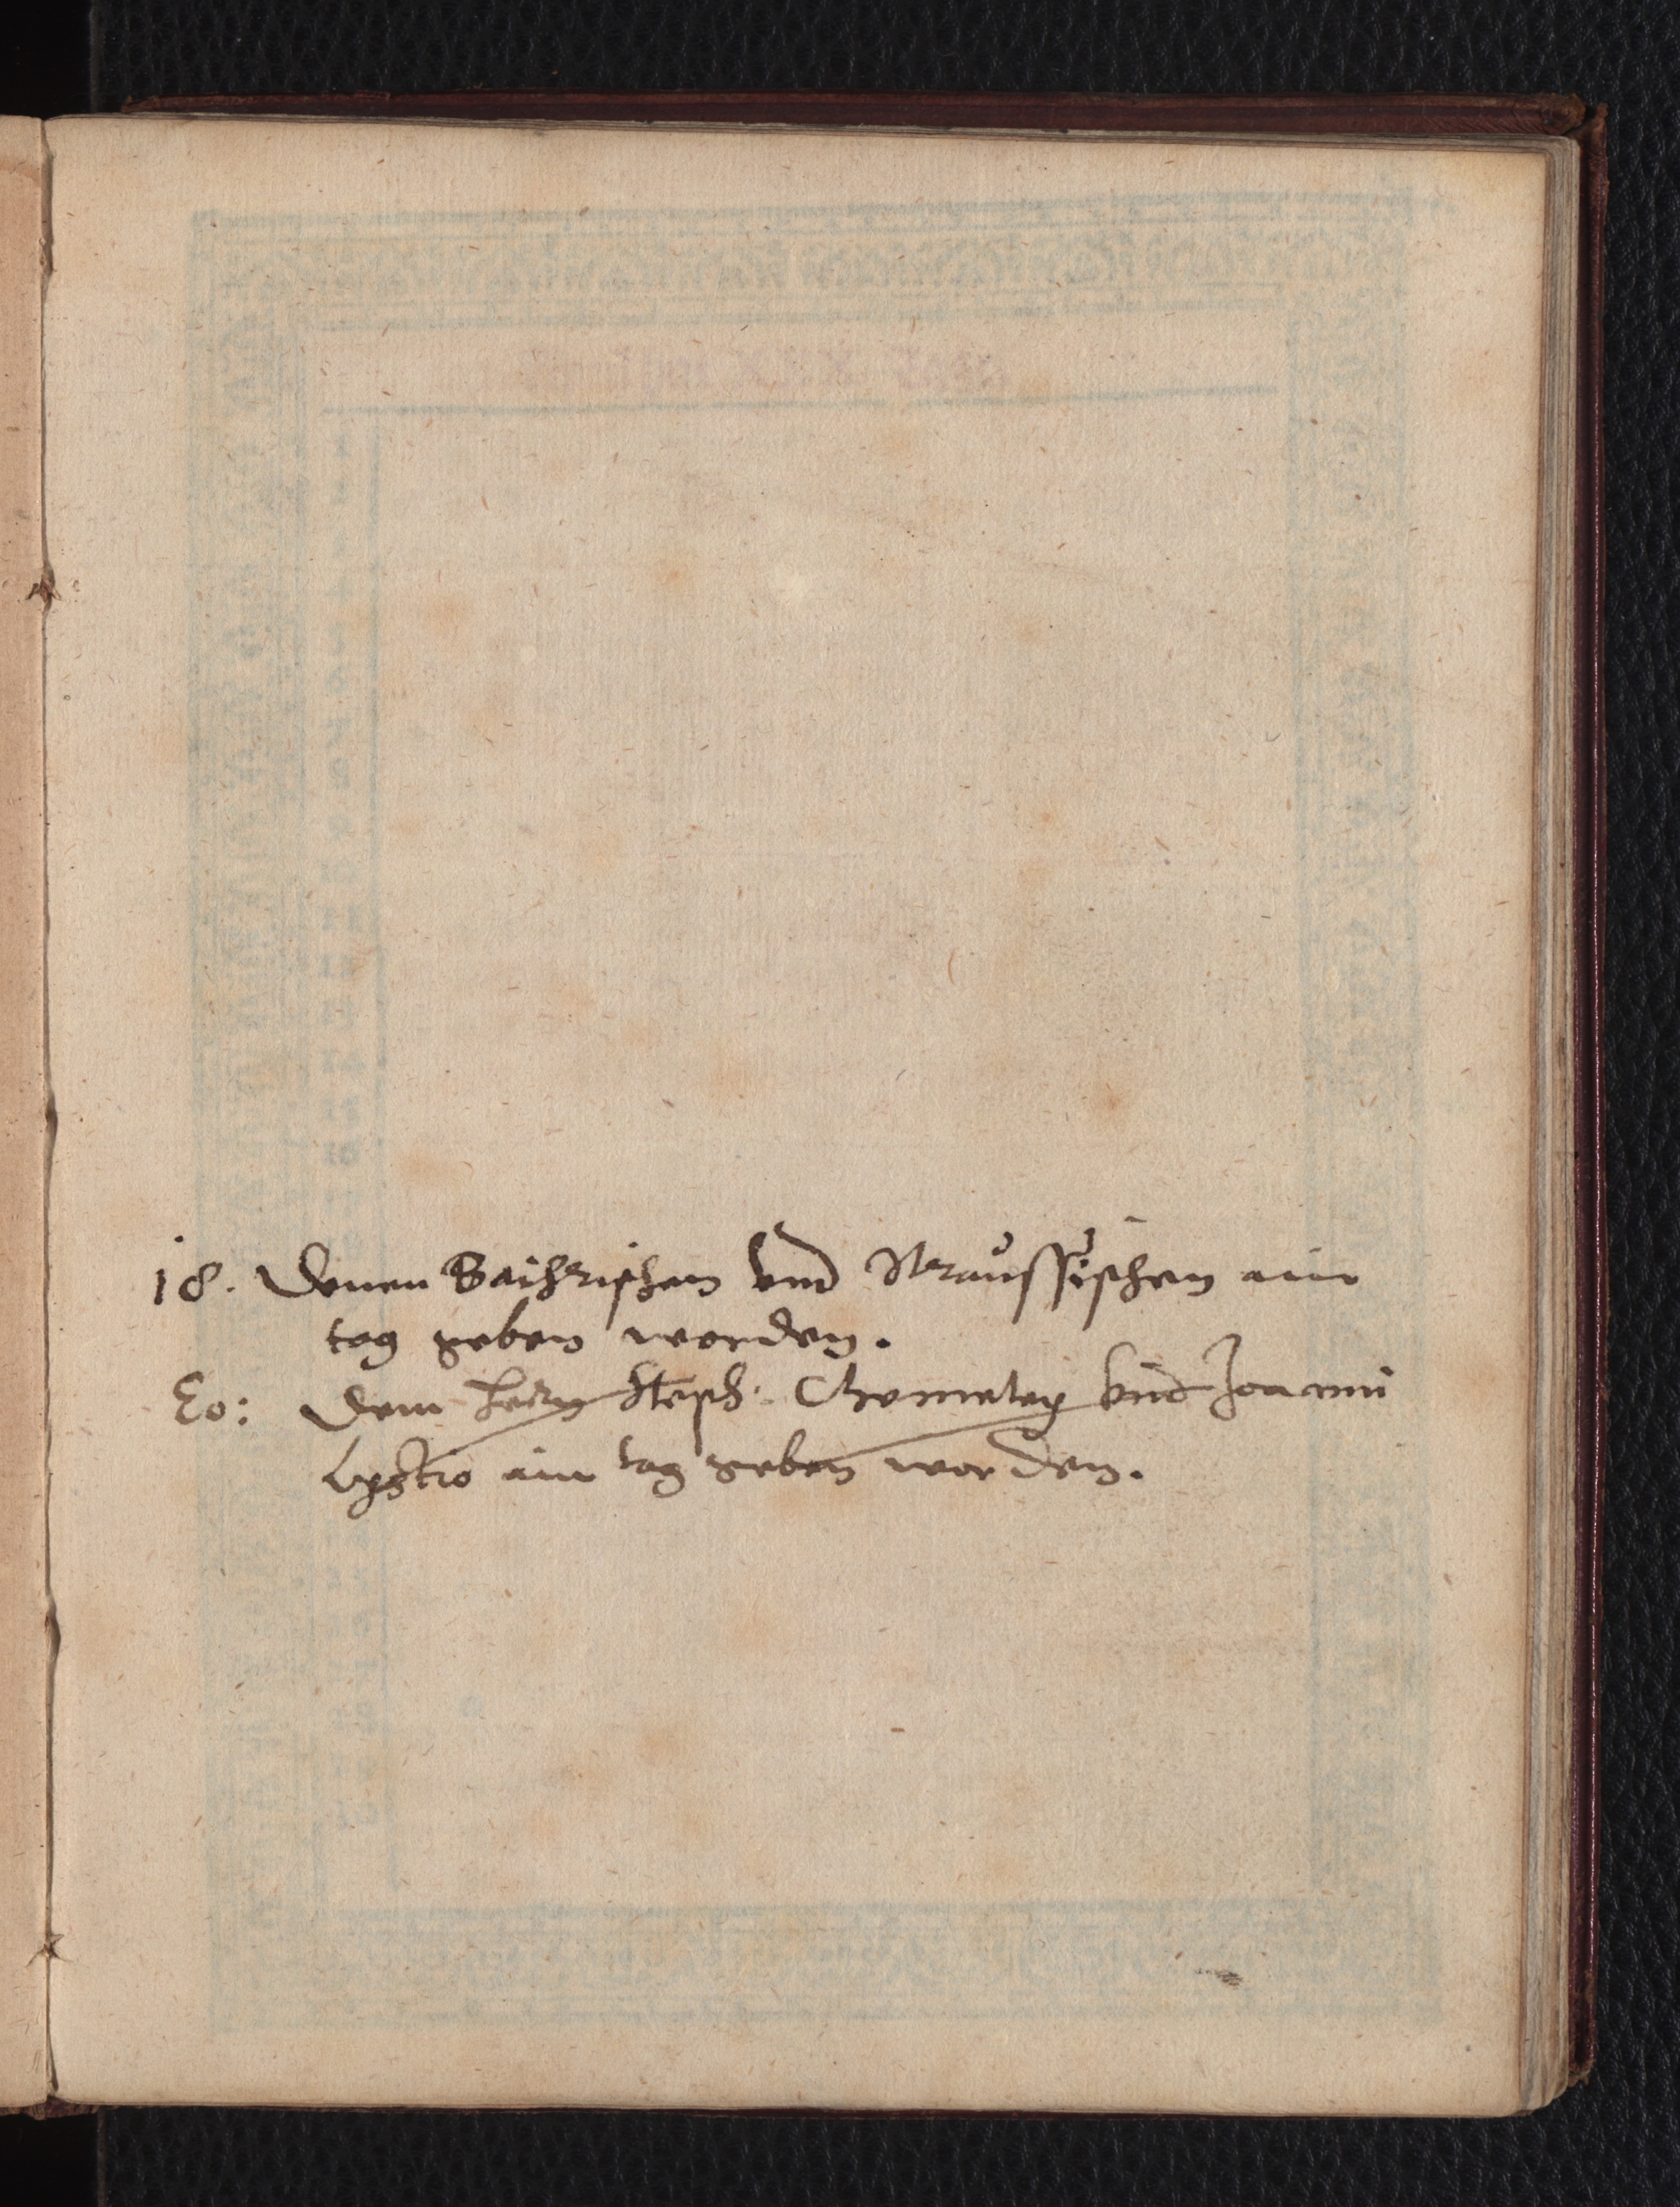 18. Denen Baihrischen vnd Straussischen ain
tag geben worden.
Eo: Dem herrn Steph: Chometey vnd Joanni
Lystio ain tag geben worden.